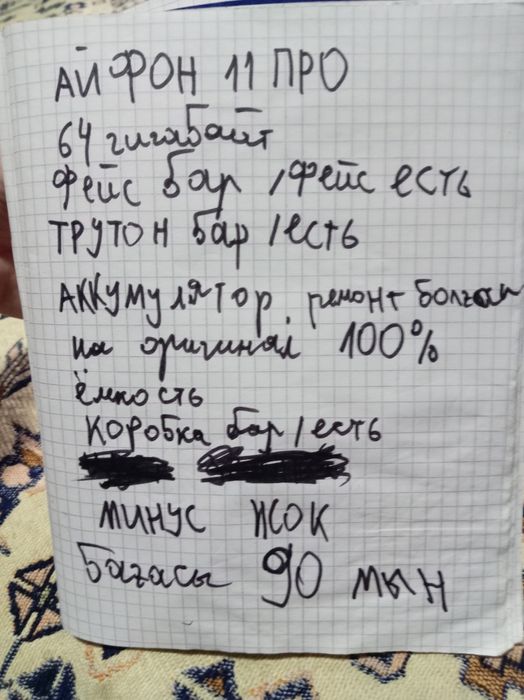 АЙФОН 11 ПРО
64 гигабайт
Фейс бар /Фейс есть
ТРУТОН бар /есть
АККУМУЛЯТОР, ремонт болган
на оригинал 100%
ёмкость
КОРОБКА бар /есть
МИНУС ЖОК
Багасы 90 МЫН